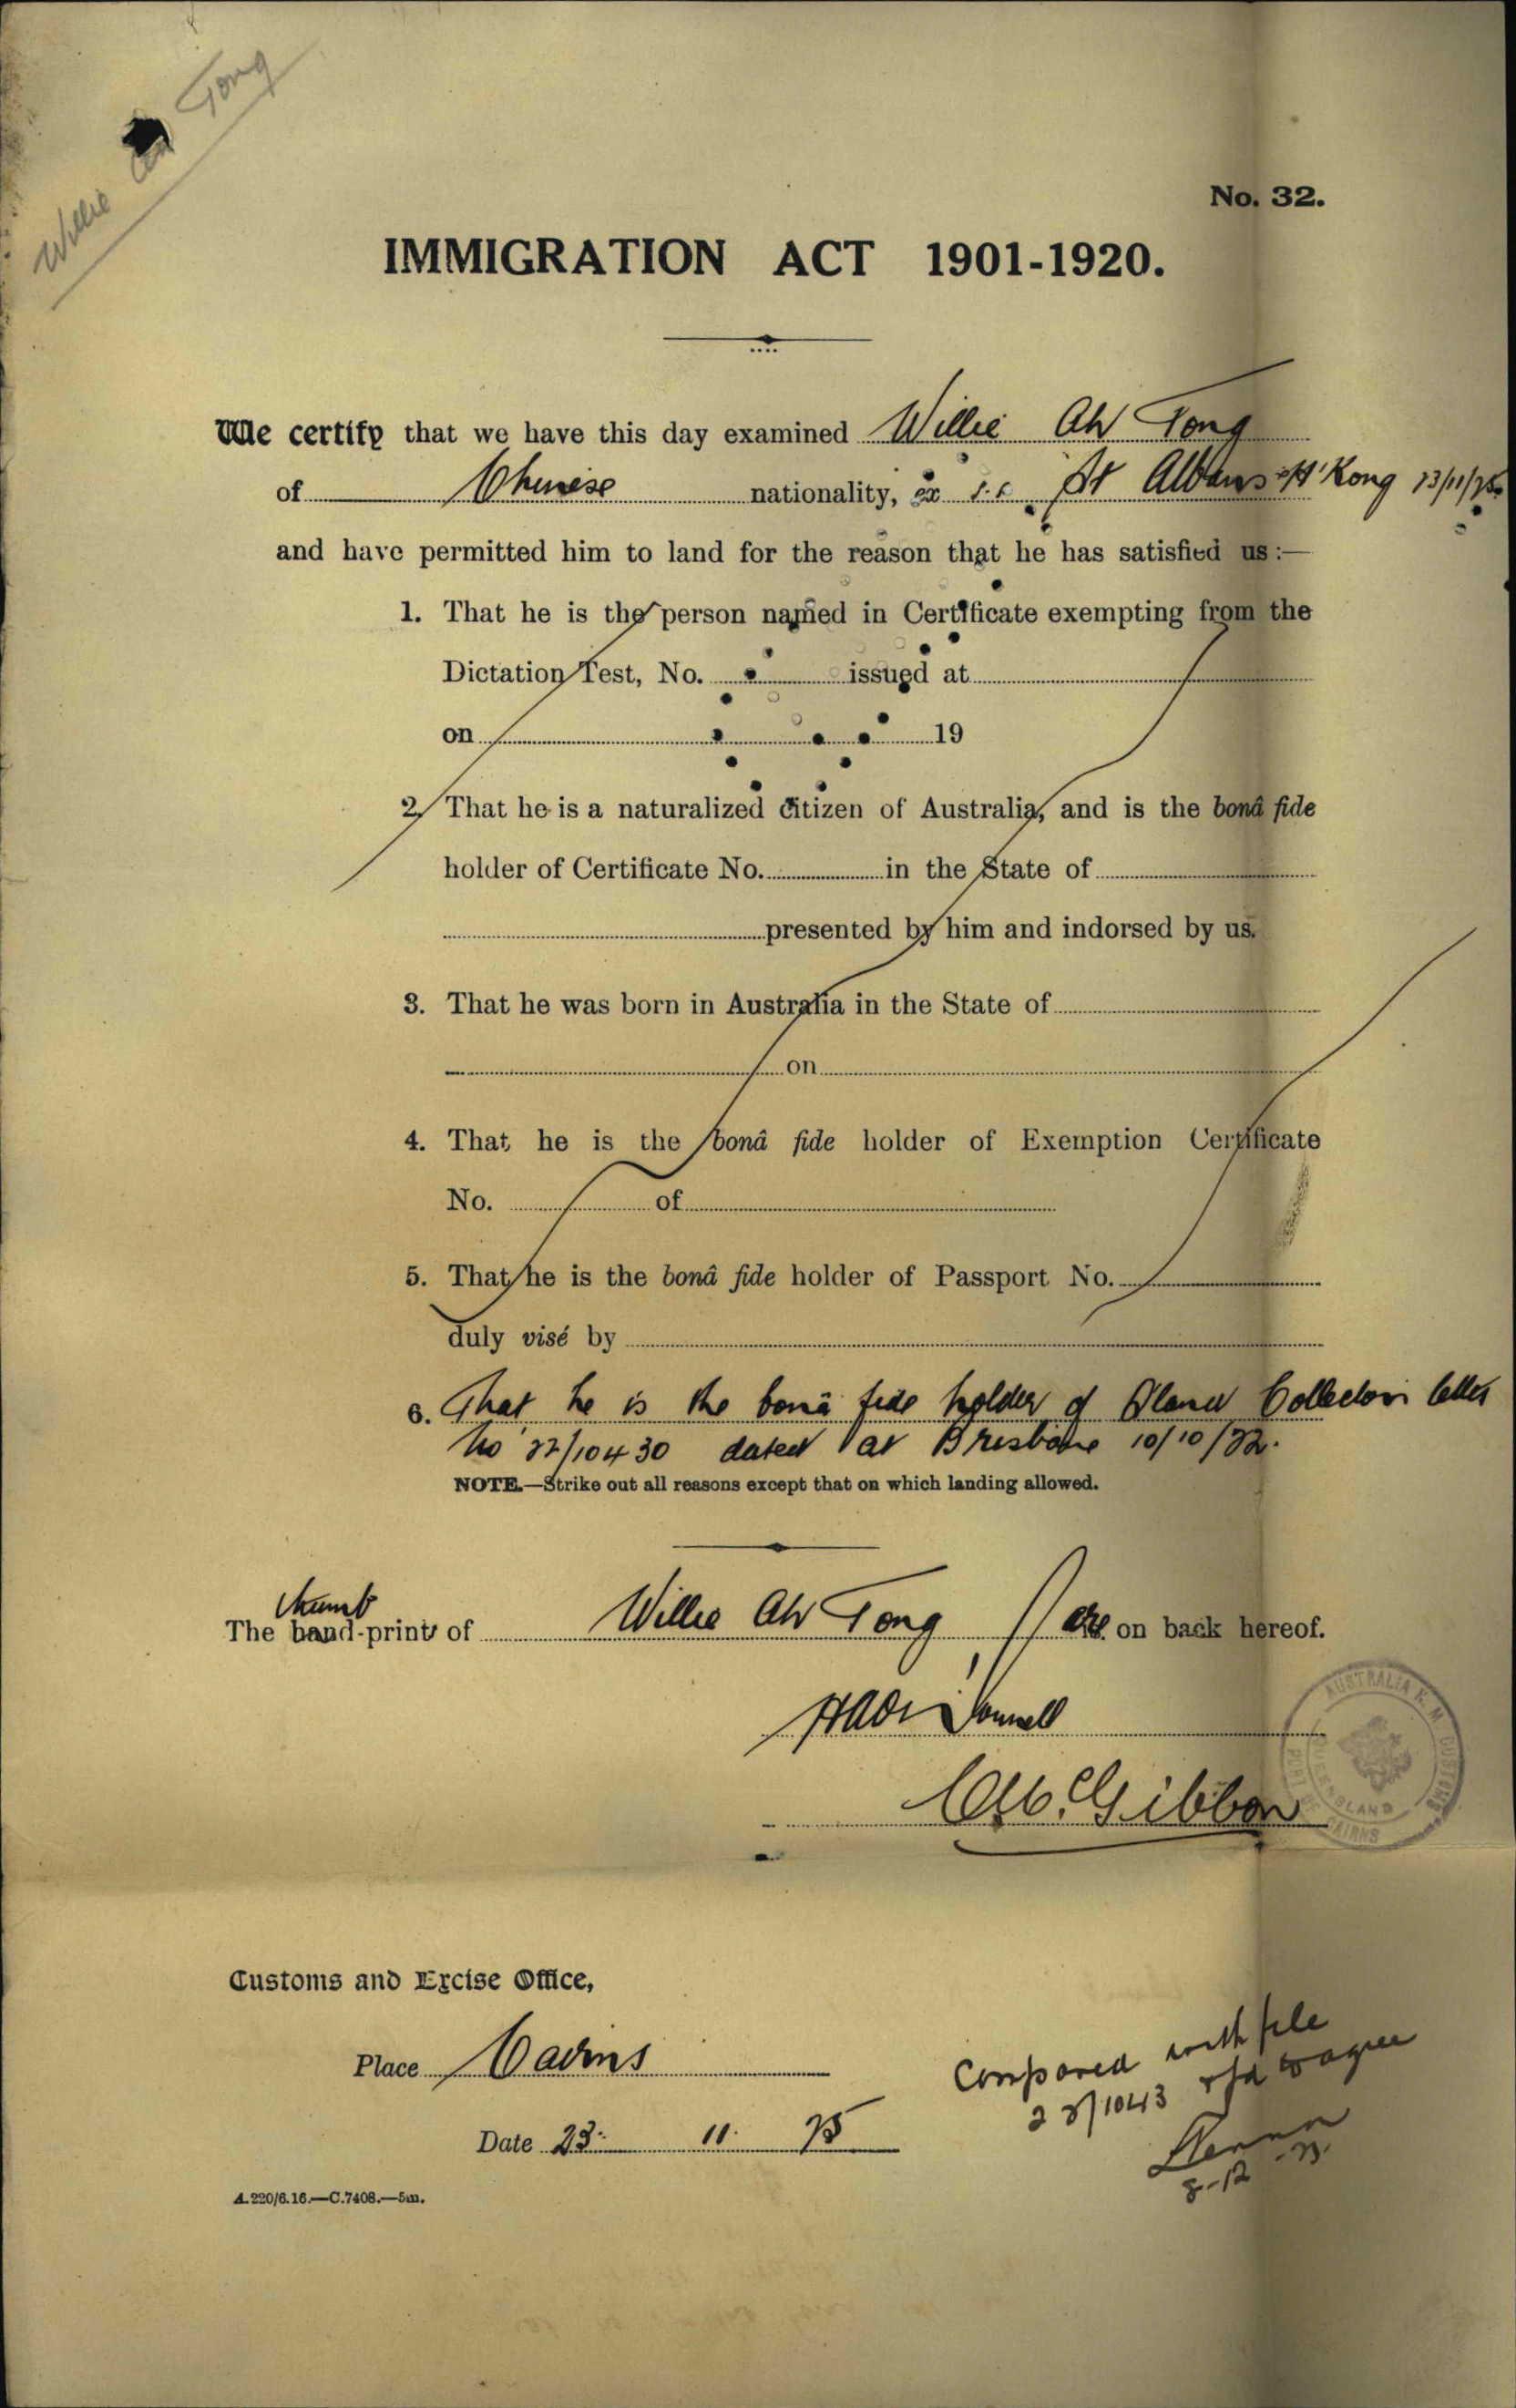 Willie Ah Tong
No. 32.
IMMIGRATION ACT 1901-1920.
We certify that we have this day examined Willie Ah Tong
of Chinese nationality, ex s.s. St Albans H'Kong 13/11/25
and have permitted him to land for the reason that he has satisfied us:—
1. That he is the person named in Certificate exempting from the
Dictation Test, No. issued at
on 19
2. That he is a naturalized citizen of Australia, and is the bonâ fide
holder of Certificate No. in the State of
presented by him and indorsed by us.
3. That he was born in Australia in the State of
on
4. That he is the bonâ fide holder of Exemption Certificate
No. of
5. That he is the bonâ fide holder of Passport No.
duly visé by
6. That he is the bonâ fide holder of Collectors letter
No 22/10430 dated at Brisbane 10/10/22.
NOTE.—Strike out all reasons except that on which landing allowed.
thumb
The hand-prints of Willie Ah Tong are on back hereof.
Gibbon
AUSTRALIA H. M. CUSTOMS
QUEENSLAND
PORT OF CAIRNS
Customs and Excise Office,
Place Cairns
Date 23. 11. 25
Compared with file
23/1043 & fd to agree
8-12
A.220/6.16.—C.7408.—5m.